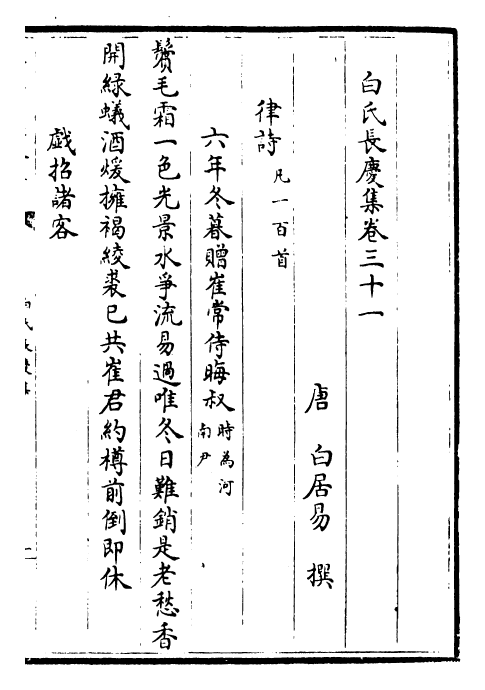 白氏長慶集卷三十一
唐 白居易 撰
律詩 凡一百首
六年冬暮贈崔常侍晦叔 時為河南尹
鬢毛霜一色光景水爭流易過唯冬日難銷是老愁香
開綠蟻酒煖擁褐綾裘已共崔君約樽前倒即休
戯招諸客